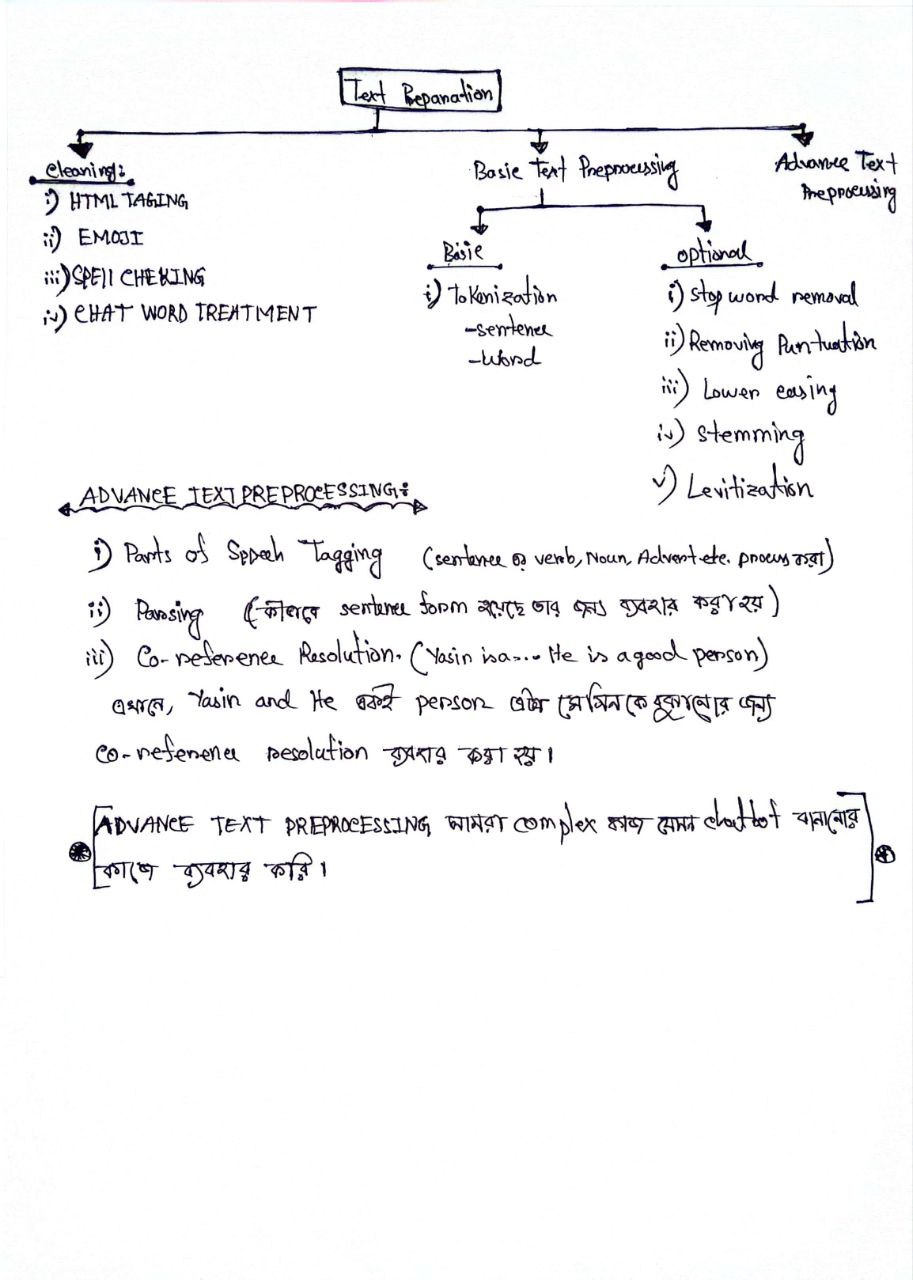 Text Reparation
Cleaning:
i) HTML TAGING
ii) EMOJI
iii) SPEll CHEKING
iv) CHAT WORD TREATMENT
Basic Text Preprocessing
Basic
i) Tokenization
-sentence
-Word
optional
i) Stop word removal
ii) Removing Puntuation
iii) Lower casing
iv) Stemming
v) Levitization
Advance Text
Preprocessing
ADVANCE TEXT PREPROCESSING:
i) Parts of Sppech Tagging (sentence এ verb, Noun, Advert etc. process করা)
ii) Parsing (কীভাবে sentence form হয়েছে তার জন্য ব্যবহার করা হয়)
iii) Co-reference Resolution. (Yasin is a.... He is a good person)
এখানে, Yasin and He একই person এটা মেসিনকে বুঝানোর জন্য
co-reference resolution ব্যবহার করা হয়।
ADVANCE TEXT PREPROCESSING আমরা complex কাজ যেমন chatbot বানানোর
কাজে ব্যবহার করি।